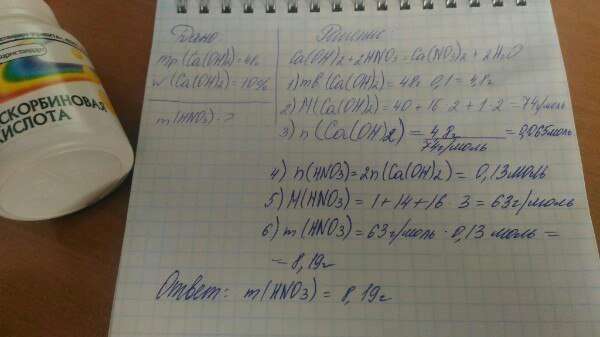 СКОРБИНОВАЯ
КИСЛОТА
Дано:
mр(Ca(OH)2)=48г
w(Ca(OH)2)=10%
m(HNO3)-?
Решение:
Ca(OH)2+2HNO3=Ca(NO3)2+2H2O
1) mв(Ca(OH)2)=48г 0,1=4,8г
2) M(Ca(OH)2)=40+16 2+1 2=74г/моль
3) n(Ca(OH)2)=4,8г/74г/моль=0,065моль
4) n(HNO3)=2n(Ca(OH)2)=0,13моль
5) M(HNO3)=1+14+16 3=63г/моль
6) m(HNO3)=63г/моль·0,13 моль=
=8,19г
Ответ: m(HNO3)=8,19г